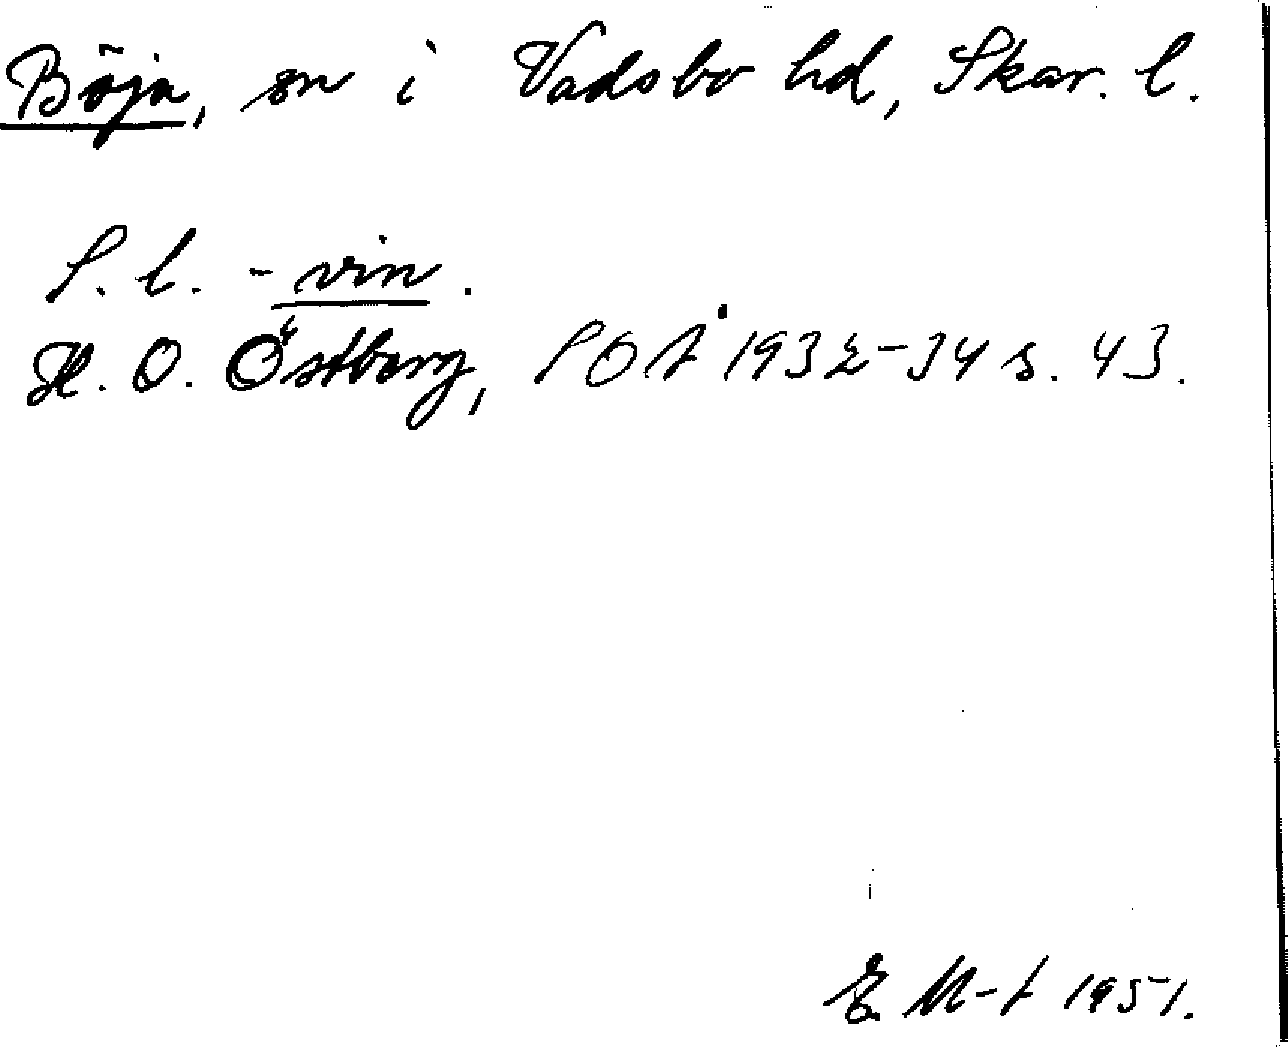 Böja, sn i Vadsbo hd, Skar. l.
S. l. -vin.
H. O. Östberg, SOÅ 1932-34 s. 43.
E M-t 1951.